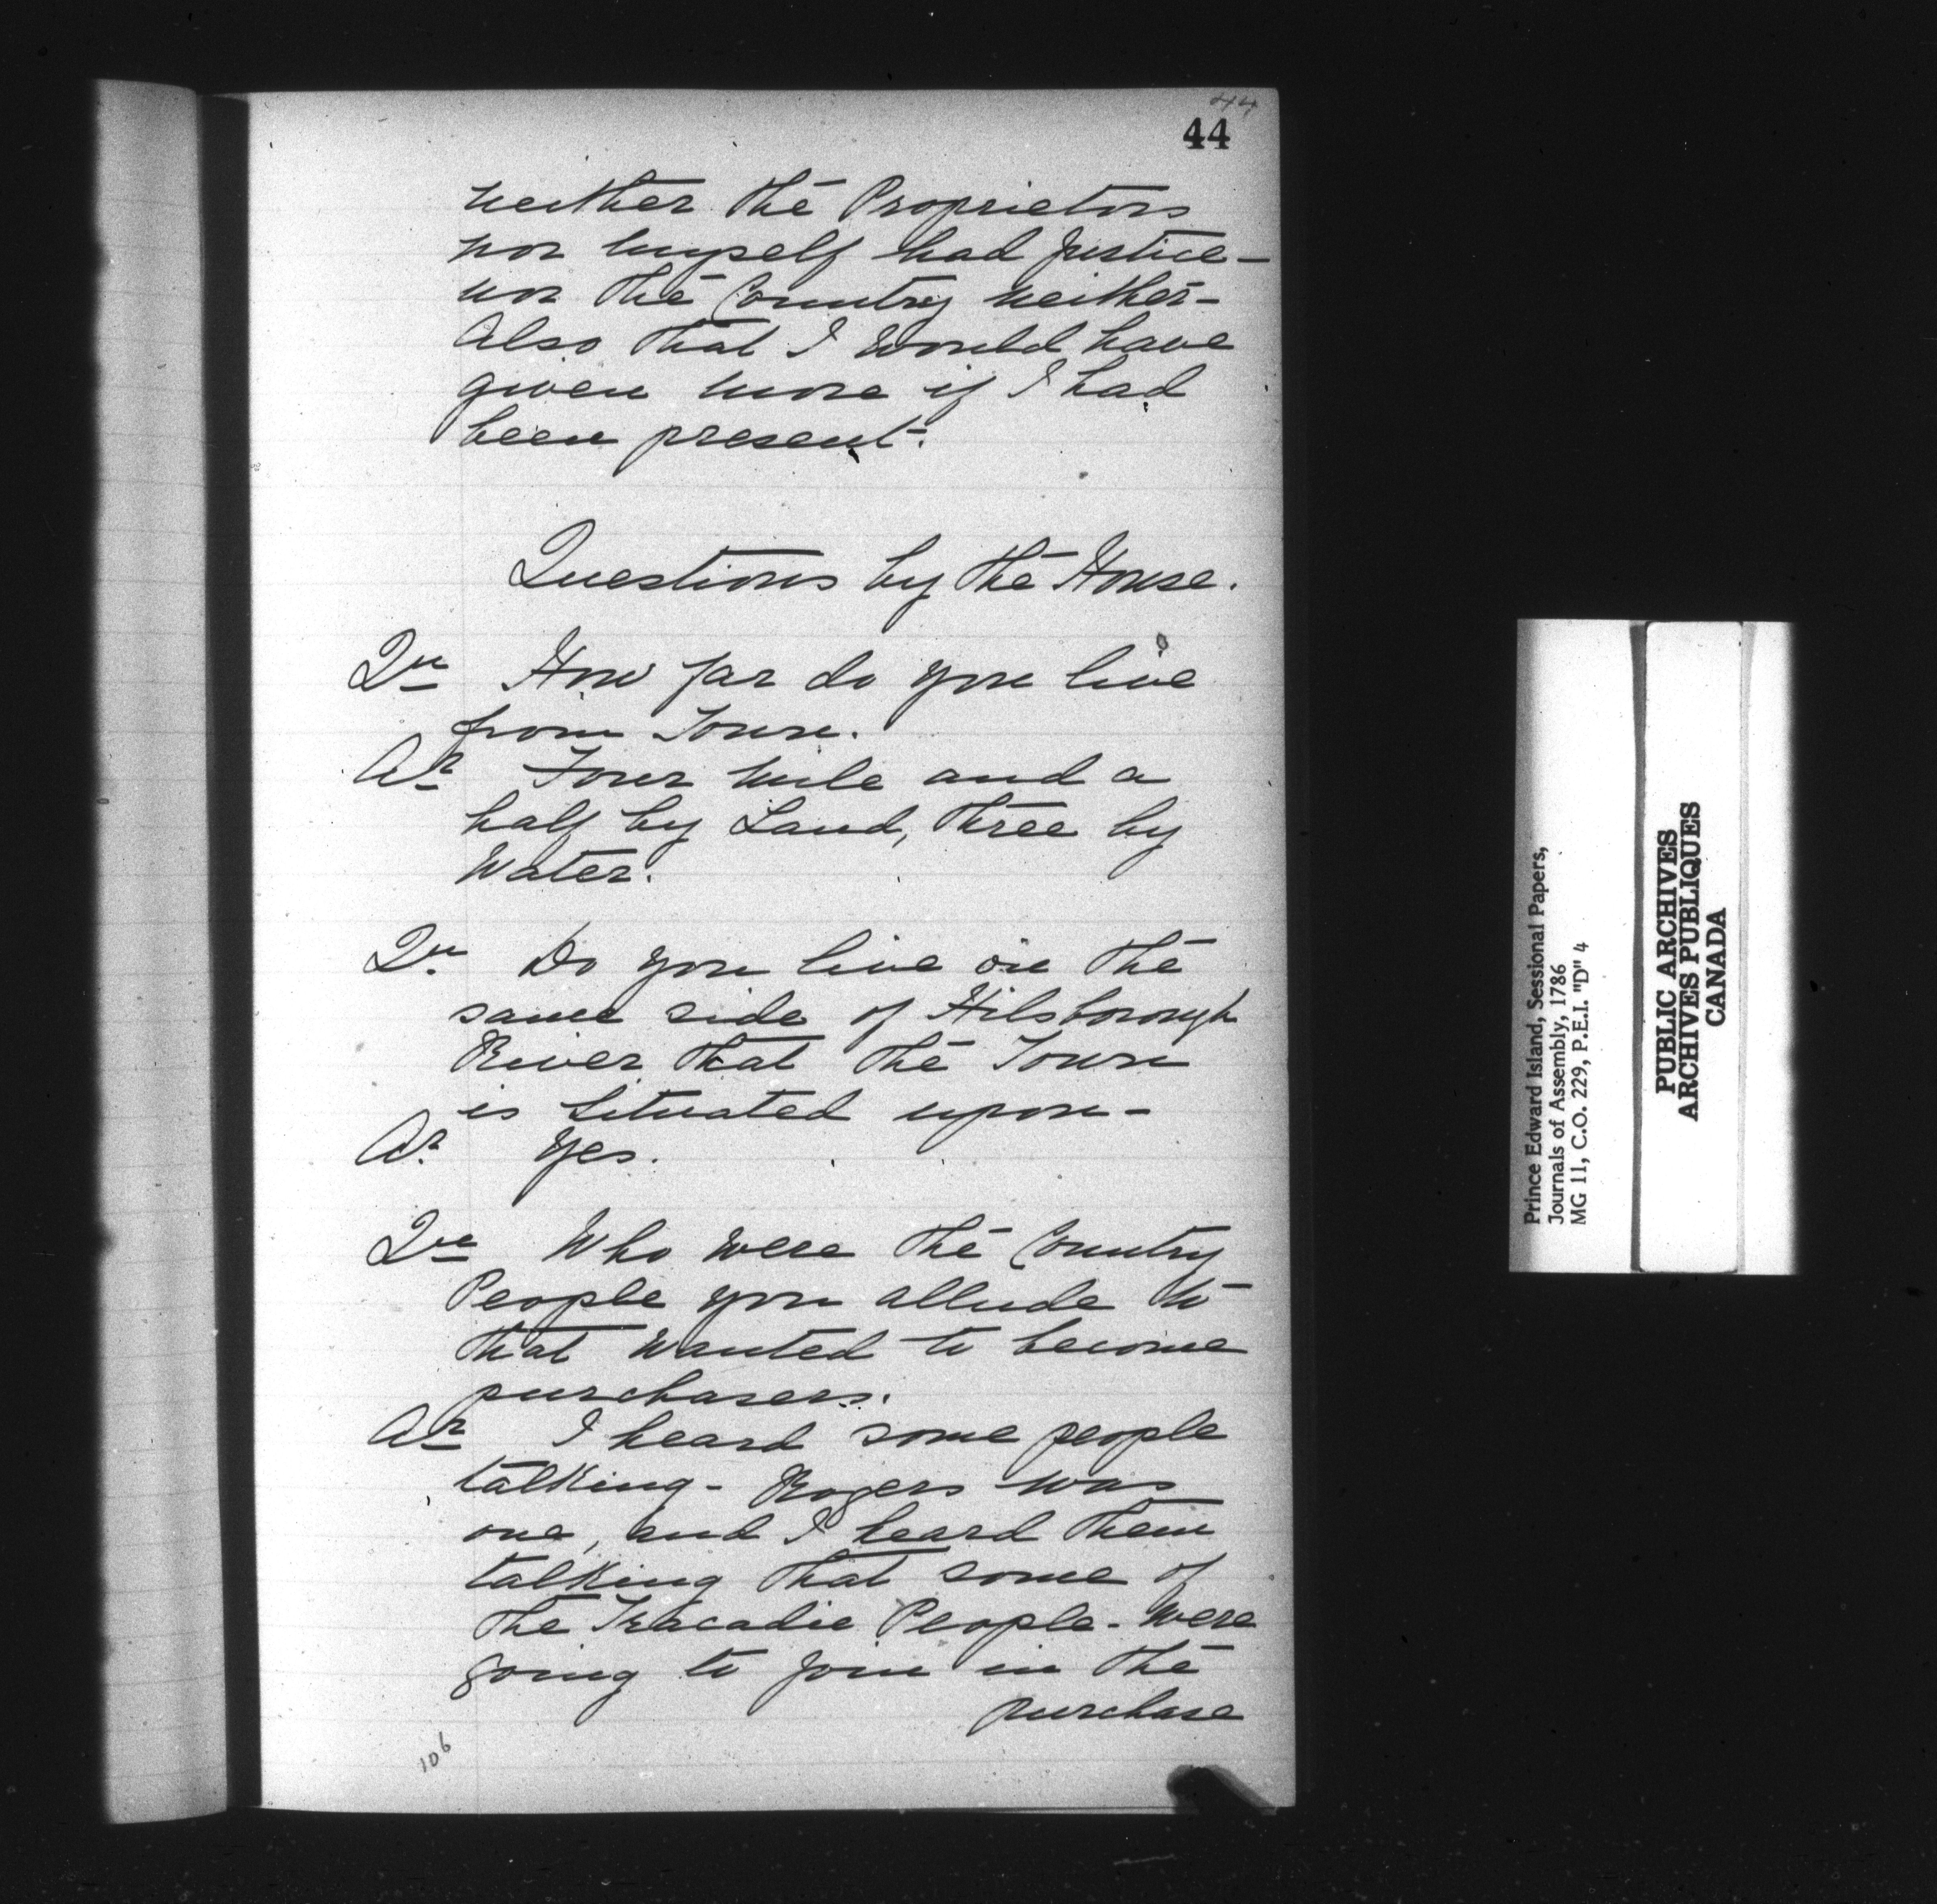 44
44
neither the Proprietors
nor myself had justice -
nor the Country neither -
Also that I would have
given more if I had
been present.
Questions by the House.
Qn How far do you live
from Town.
Ar Four mile and a
half by Land, three by
Water.
Qn Do you live on the
same side of Hilsborough
River that the Town
is Situated upon -
Ar Yes.
Qn Who were the Country
People you allude to
that wanted to become
purchasers.
Ar I heard some people
talking - Rogers was
one, and I heard them
talking that some of
the Tracadie People - were
going to join in the
purchase
106
Prince Edward Island, Sessional Papers,
Journals of Assembly, 1786
MG 11, C.O. 229, P.E.I. "D" 4
PUBLIC ARCHIVES
ARCHIVES PUBLIQUES
CANADA